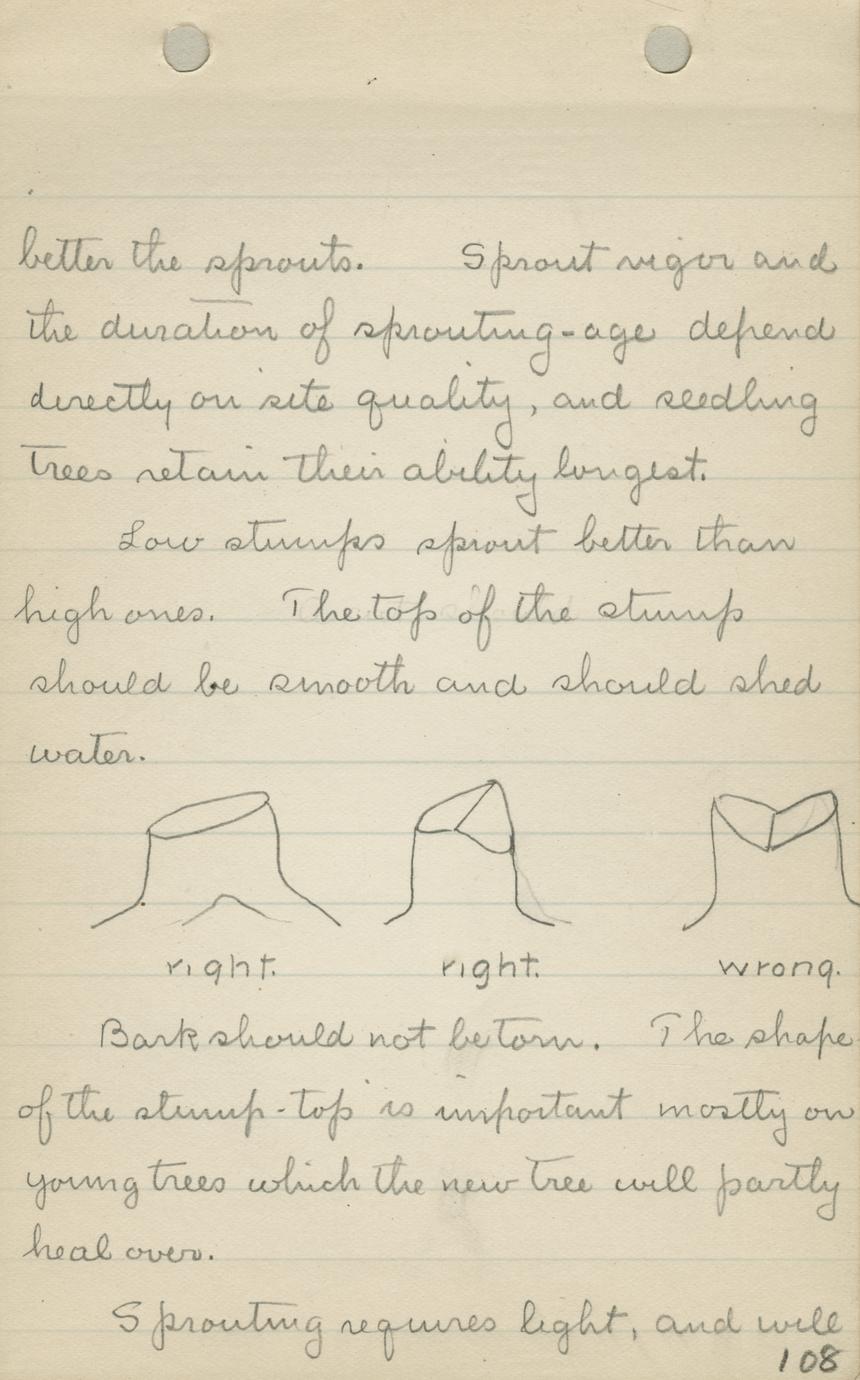 better the sprouts. Sprout vigor and
the duration of sprouting-age depend
directly on site quality, and seedling
trees retain their ability longest.
Low stumps sprout better than
high ones. The top of the stump
should be smooth and should shed
water.
right. right. wrong.
Bark should not be torn. The shape
of the stump-top is important mostly on
young trees which the new tree will partly
heal over.
Sprouting requires light, and will
108